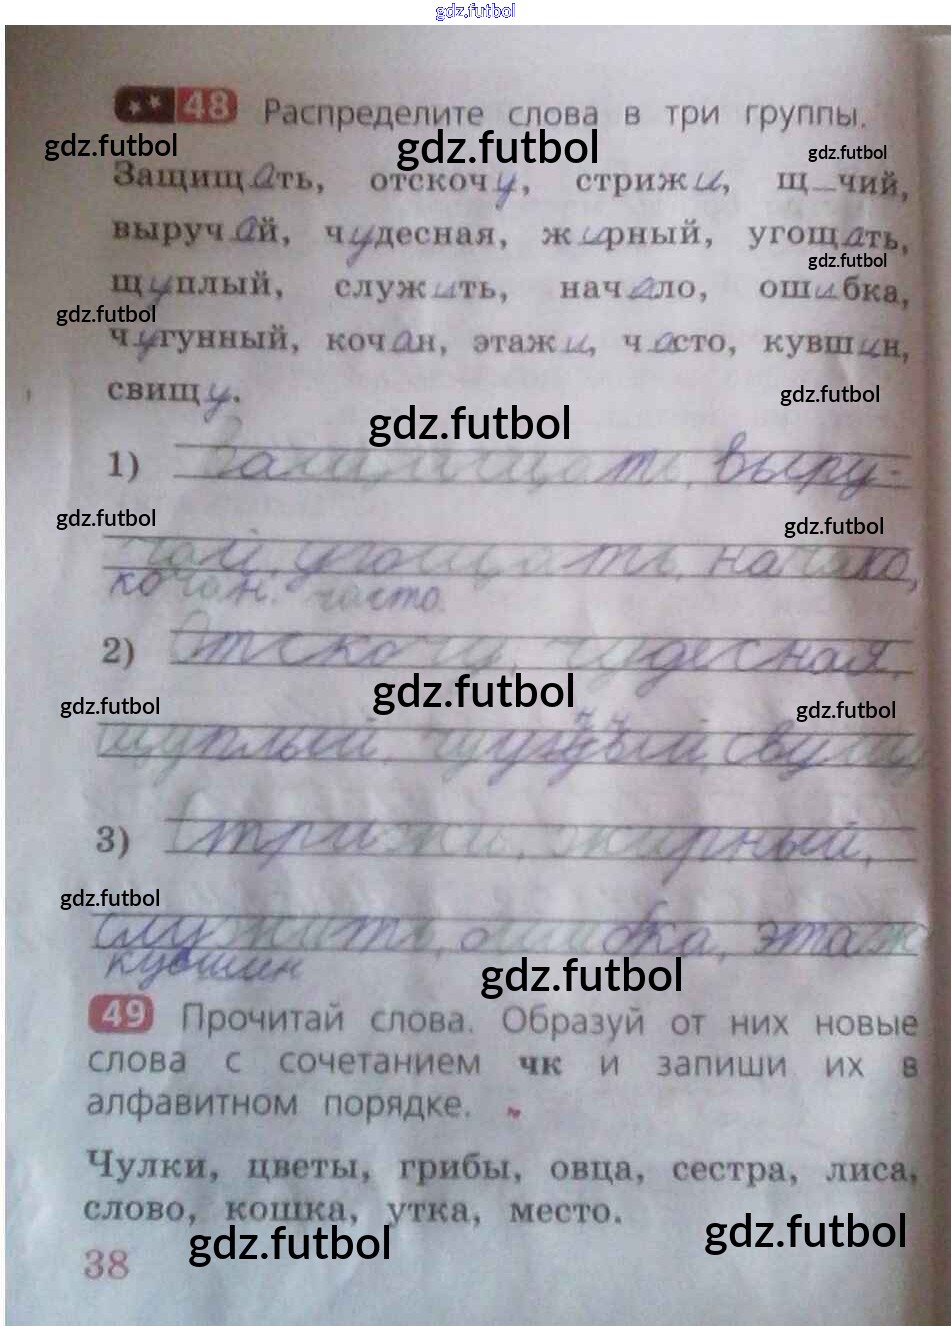 gdz.futbol
48 Распределите слова в три группы.
gdz.futbol gdz.futbol gdz.futbol
Защищать, отскочу, стрижи, щ_чий,
выручай, чудесная, жирный, угощать,
gdz.futbol
щуплый, служить, начало, ошибка,
gdz.futbol
чугунный, кочан, этажи, часто, кувшин,
gdz.futbol
свищу.
gdz.futbol
1) Защищать, выру-
gdz.futbol gdz.futbol
чай, угощать, начало,
кочан. часто.
2) Отскочу, чудесная,
gdz.futbol
gdz.futbol gdz.futbol
щуплый,
3) Стрижи, жирный,
gdz.futbol
служить, ошибка, этаж
кувшин
gdz.futbol
49 Прочитай слова. Образуй от них новые
слова с сочетанием чк и запиши их в
алфавитном порядке.
Чулки, цветы, грибы, овца, сестра, лиса,
слово, кошка, утка, место.
gdz.futbol gdz.futbol
38